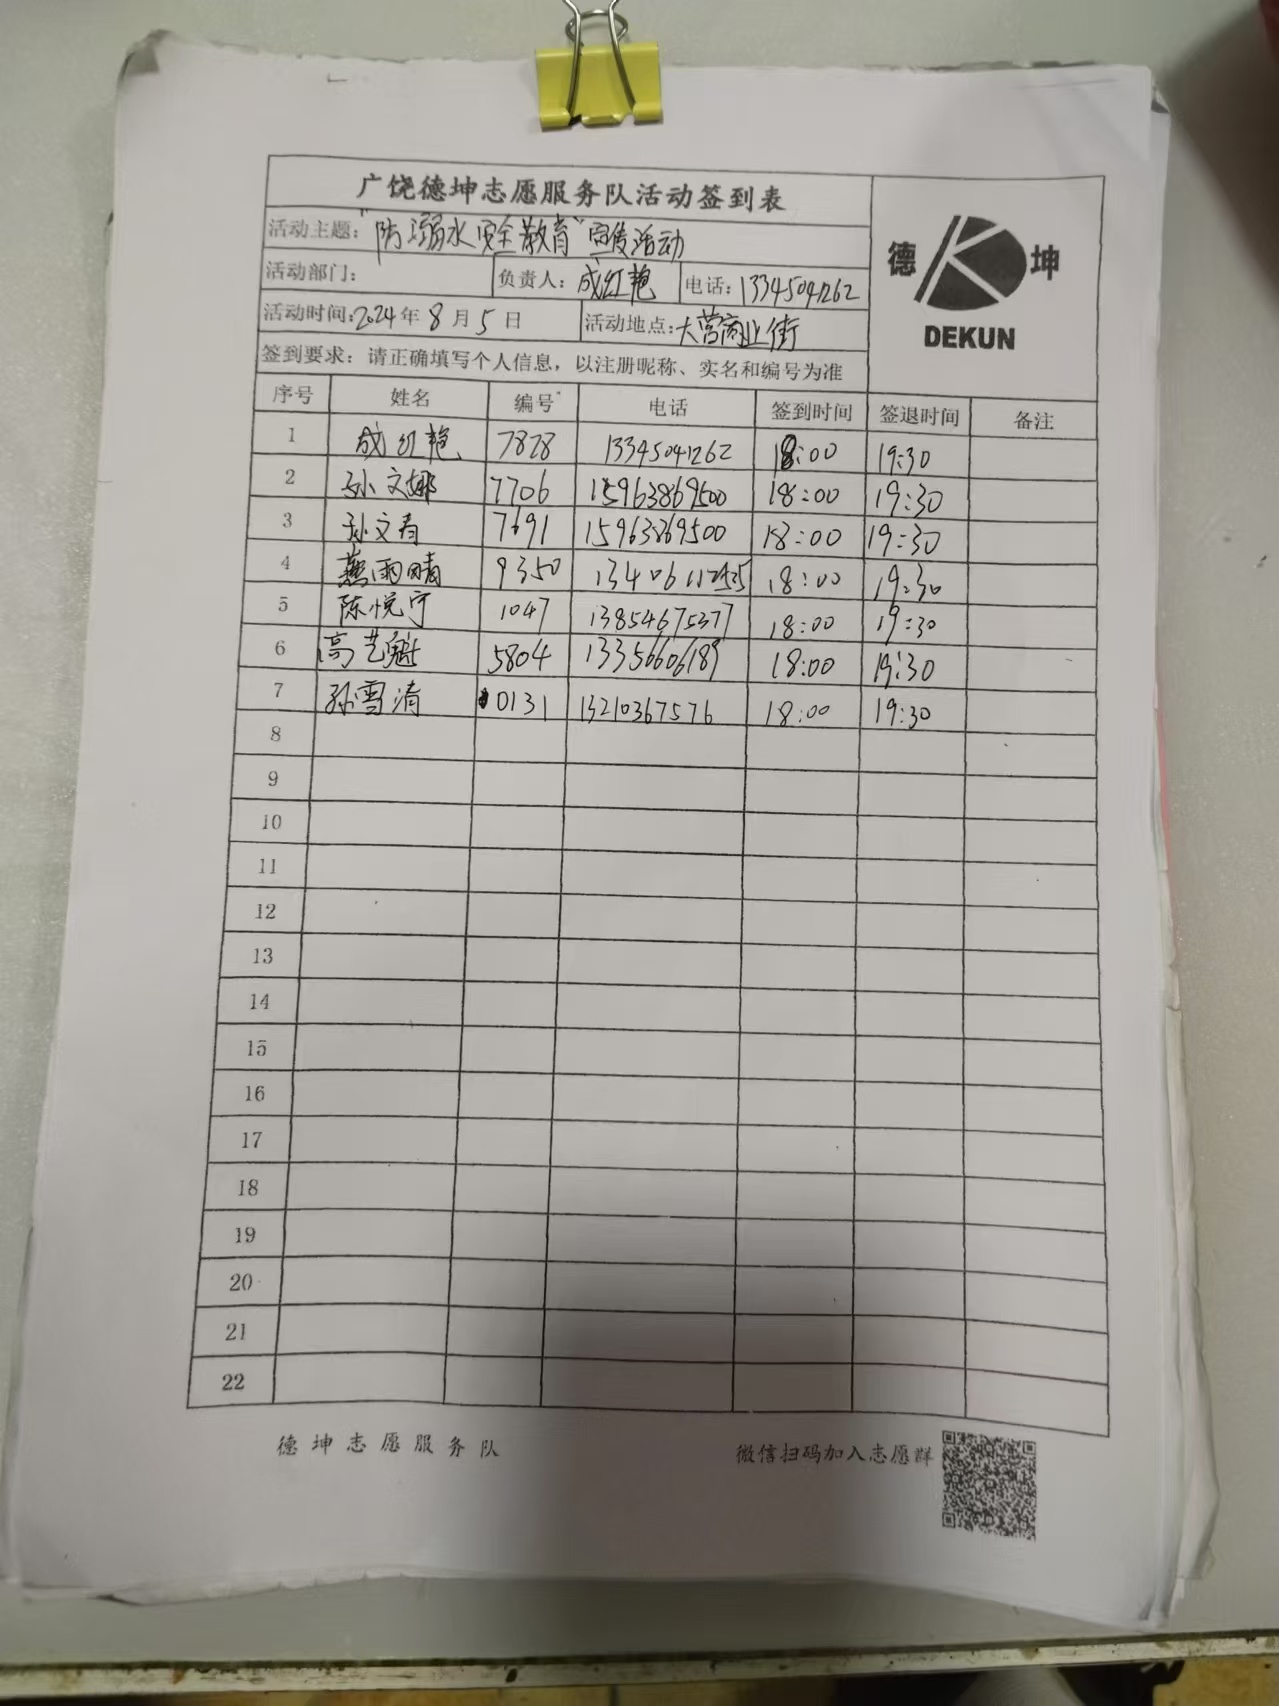 广饶德坤志愿服务队活动签到表
活动主题："防溺水安全教育"宣传活动
活动部门： 负责人：成红艳 电话：13345041262
活动时间：2024年8月5日 活动地点：大营商业街
签到要求：请正确填写个人信息，以注册昵称、实名和编号为准
德 坤
DEKUN
序号 姓名 编号 电话 签到时间 签退时间 备注
1 成红艳 7828 13345041262 18:00 19:30
2 孙文娜 7706 15963869500 18:00 19:30
3 孙文春 7691 15963869500 18:00 19:30
4 燕雨晴 9350 18:00 19:30
5 陈悦宁 1047 13854675377 18:00 19:30
6 高艺魁 5804 13356606189 18:00 19:30
7 孙雪清 0131 13210367576 18:00 19:30
8
9
10
11
12
13
14
15
16
17
18
19
20
21
22
德坤志愿服务队 微信扫码加入志愿群